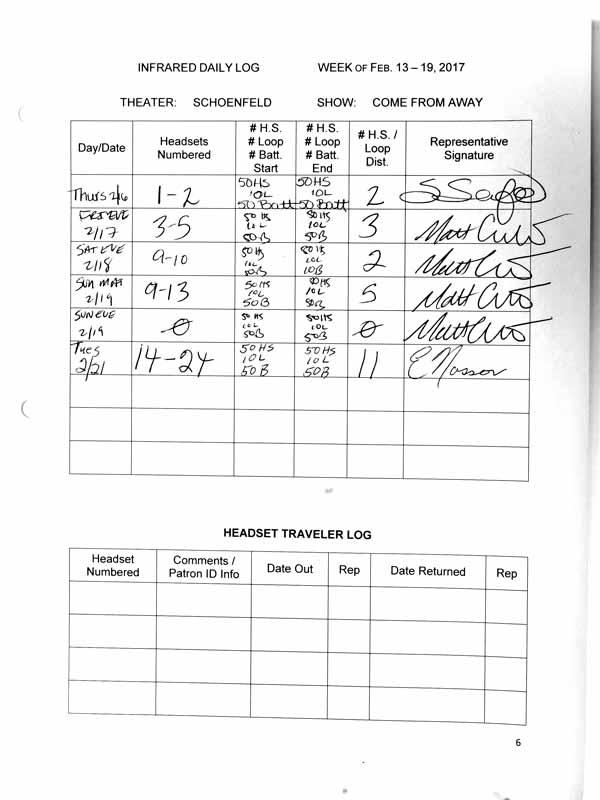 INFRARED DAILY LOG WEEK OF FEB. 13 – 19, 2017
THEATER: SCHOENFELD SHOW: COME FROM AWAY
Day/Date Headsets Numbered # H.S. # Loop # Batt. Start # H.S. # Loop # Batt. End # H.S. / Loop Dist. Representative Signature
Thurs 2/16 1-2 50HS 10L 50 Batt 50HS 10L 50 Batt 2
FRI EVE 2/17 3-5 50 HS 10 L 50B 50 HS 10L 50B 3 Matt
SAT EVE 2/18 9-10 50 HS 10L 50B 50 HS 10L 10B 2 Matt
SUN MAT 2/19 9-13 50 HS 10L 50B 50 HS 10L 50B 5 Matt
SUN EVE 2/19 0 50 HS 10L 50B 50HS 10L 50B 0 Matt
Tues 2/21 14-24 50HS 10L 50B 50HS 10L 50B 11 E Nasser
HEADSET TRAVELER LOG
Headset Numbered Comments / Patron ID Info Date Out Rep Date Returned Rep
6